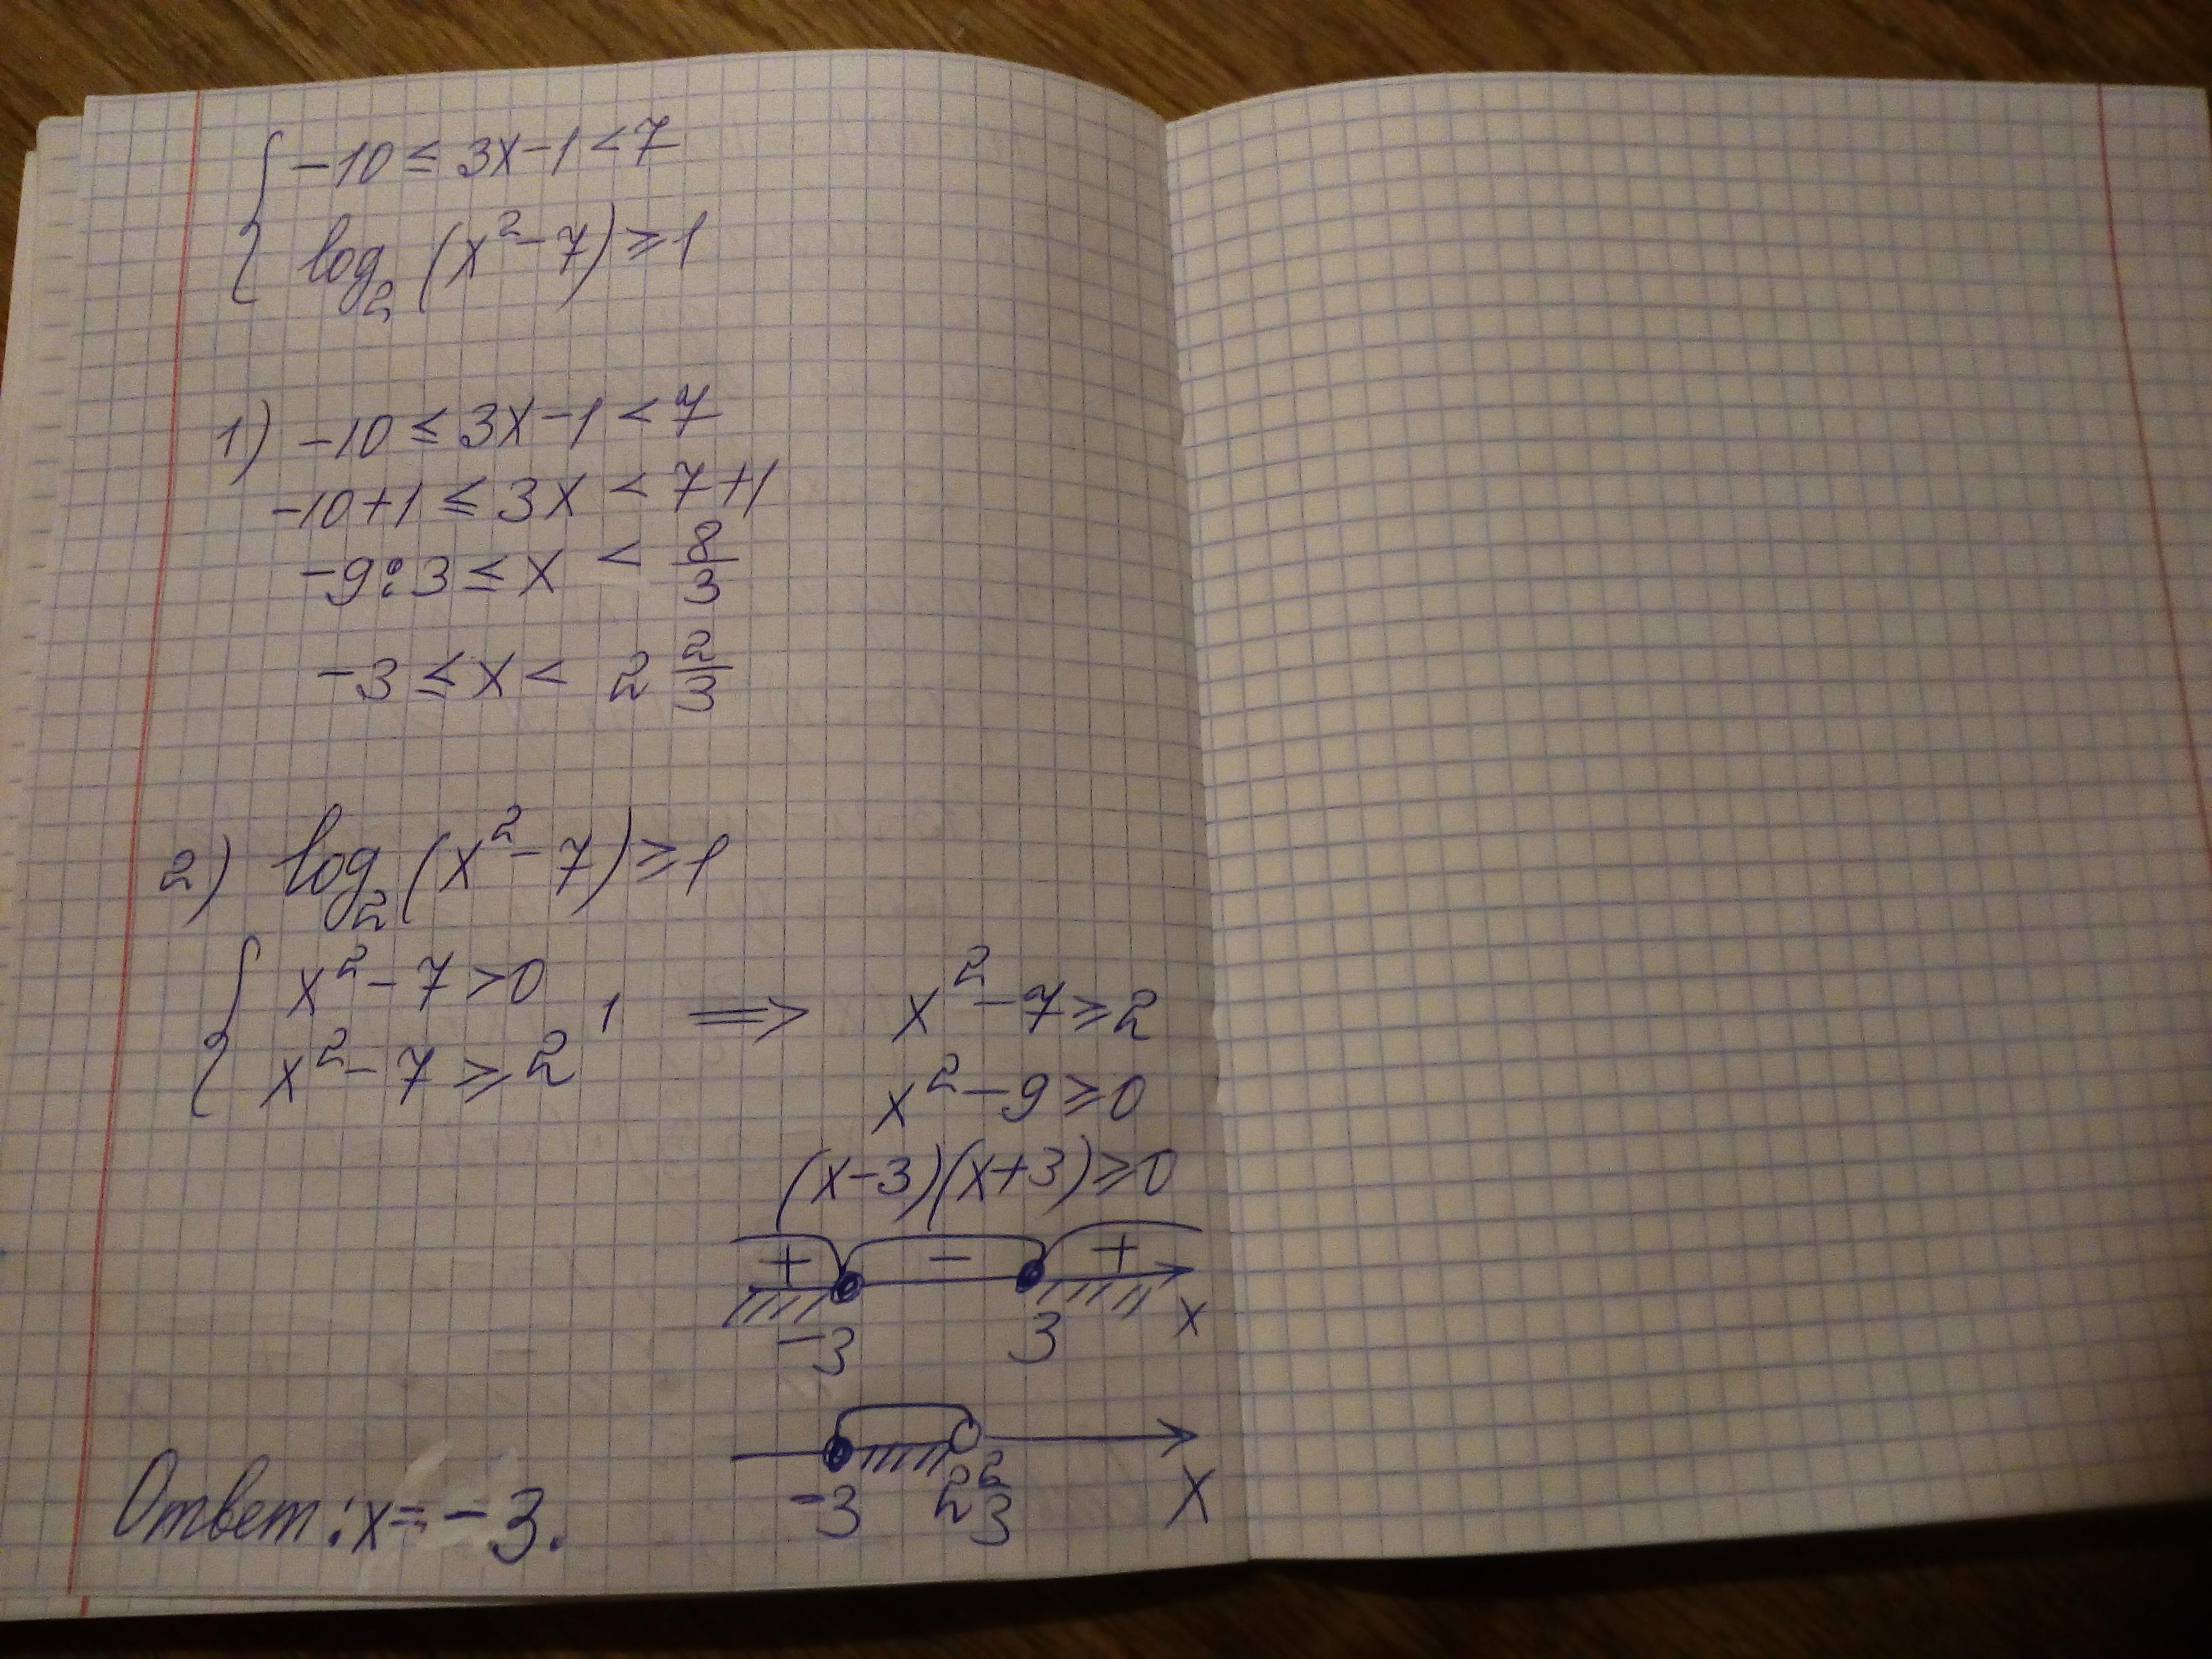 { -10 ≤ 3x-1 < 7
log₂ (x²-7) ≥ 1
1) -10 ≤ 3x-1 < 7
-10+1 ≤ 3x < 7+1
-9:3 ≤ x < 8/3
-3 ≤ x < 2 2/3
2) log₂ (x²-7) ≥ 1
{ x²-7 > 0
x²-7 ≥ 2¹ ⟹ x²-7 ≥ 2
x²-9 ≥ 0
(x-3)(x+3) ≥ 0
+ - +
-3 3 x
-3 2 2/3 x
Ответ: x = -3.